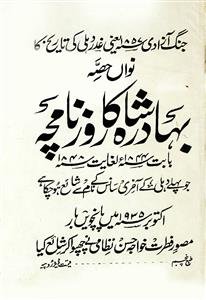 جنگ آزادی ۱۸۵۷ء یعنی غدر دہلی کی تاریخ کا
نواں حصہ
بہادر شاہ کا روزنامچہ
بابت ۱۸۴۴ء لغایت ۱۸۴۸ء
جو پہلے دہلی کے آخری سانس کے نام سے شائع ہوچکا ہے
اکتوبر ۱۹۳۵ء میں پانچویں بار
مصور فطرت خواجہ حسن نظامی نے چھپوا کر شائع کیا